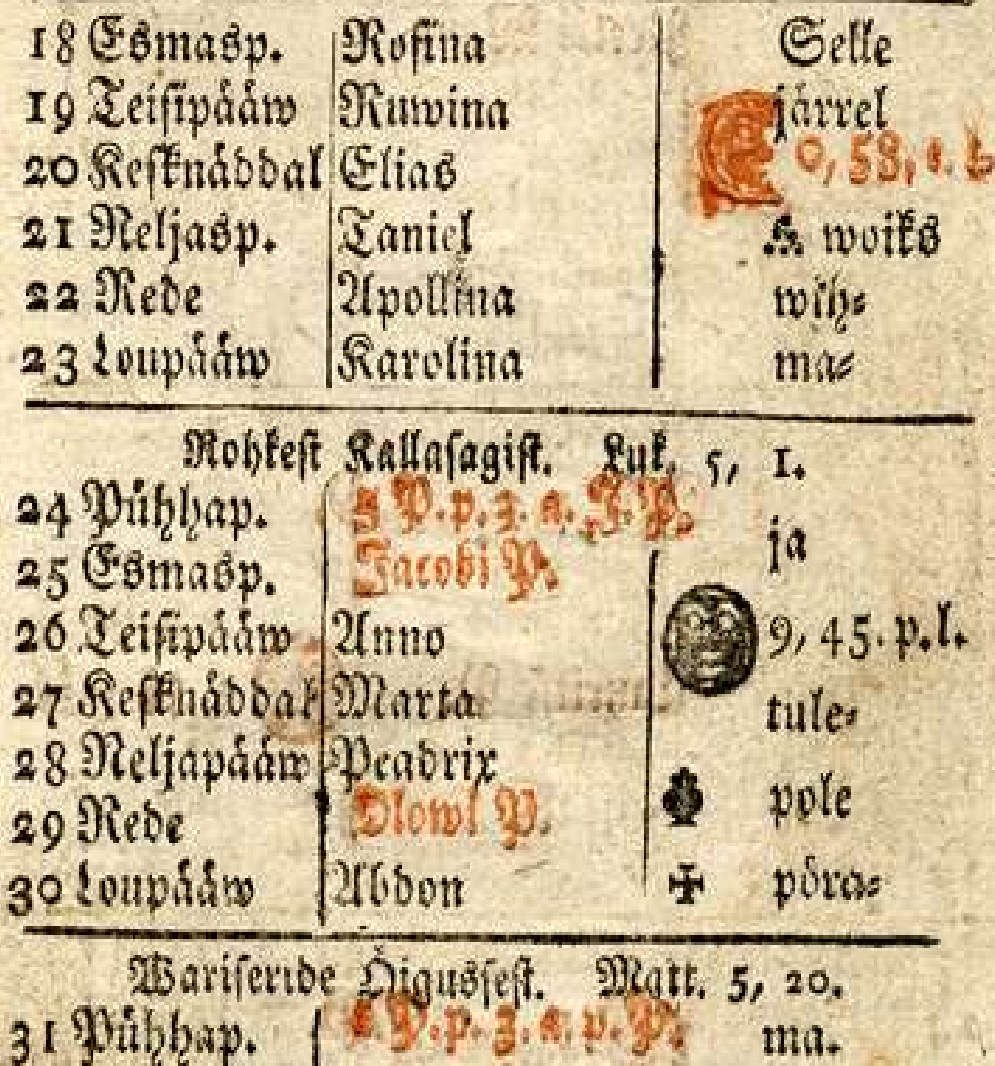 18 Esmasp. Rosina Selle
19 Teisipääw Ruwina järrel
20 Kesknäddal Elias 0, 58,
21 Neljasp. Taniel woiks
22 Rede Apollina wih-
23 Loupääw Karolina ma-
Rohkest Kallasagist. Luk. 5, 1.
24 Pühhap. P. p. 3. a. J. P. ja
25 Esmasp. Jacobi P.
26 Teisipääw Anno 9, 45. p. l.
27 Kesknäddal Marta tule-
28 Neljapääw Peadrix
29 Rede Olowi P. pole
30 Loupääw Abdon pöra-
Wariseride Öigussest. Matt. 5, 20.
31 Pühhap. P. p. 3. a. p. P. ma.